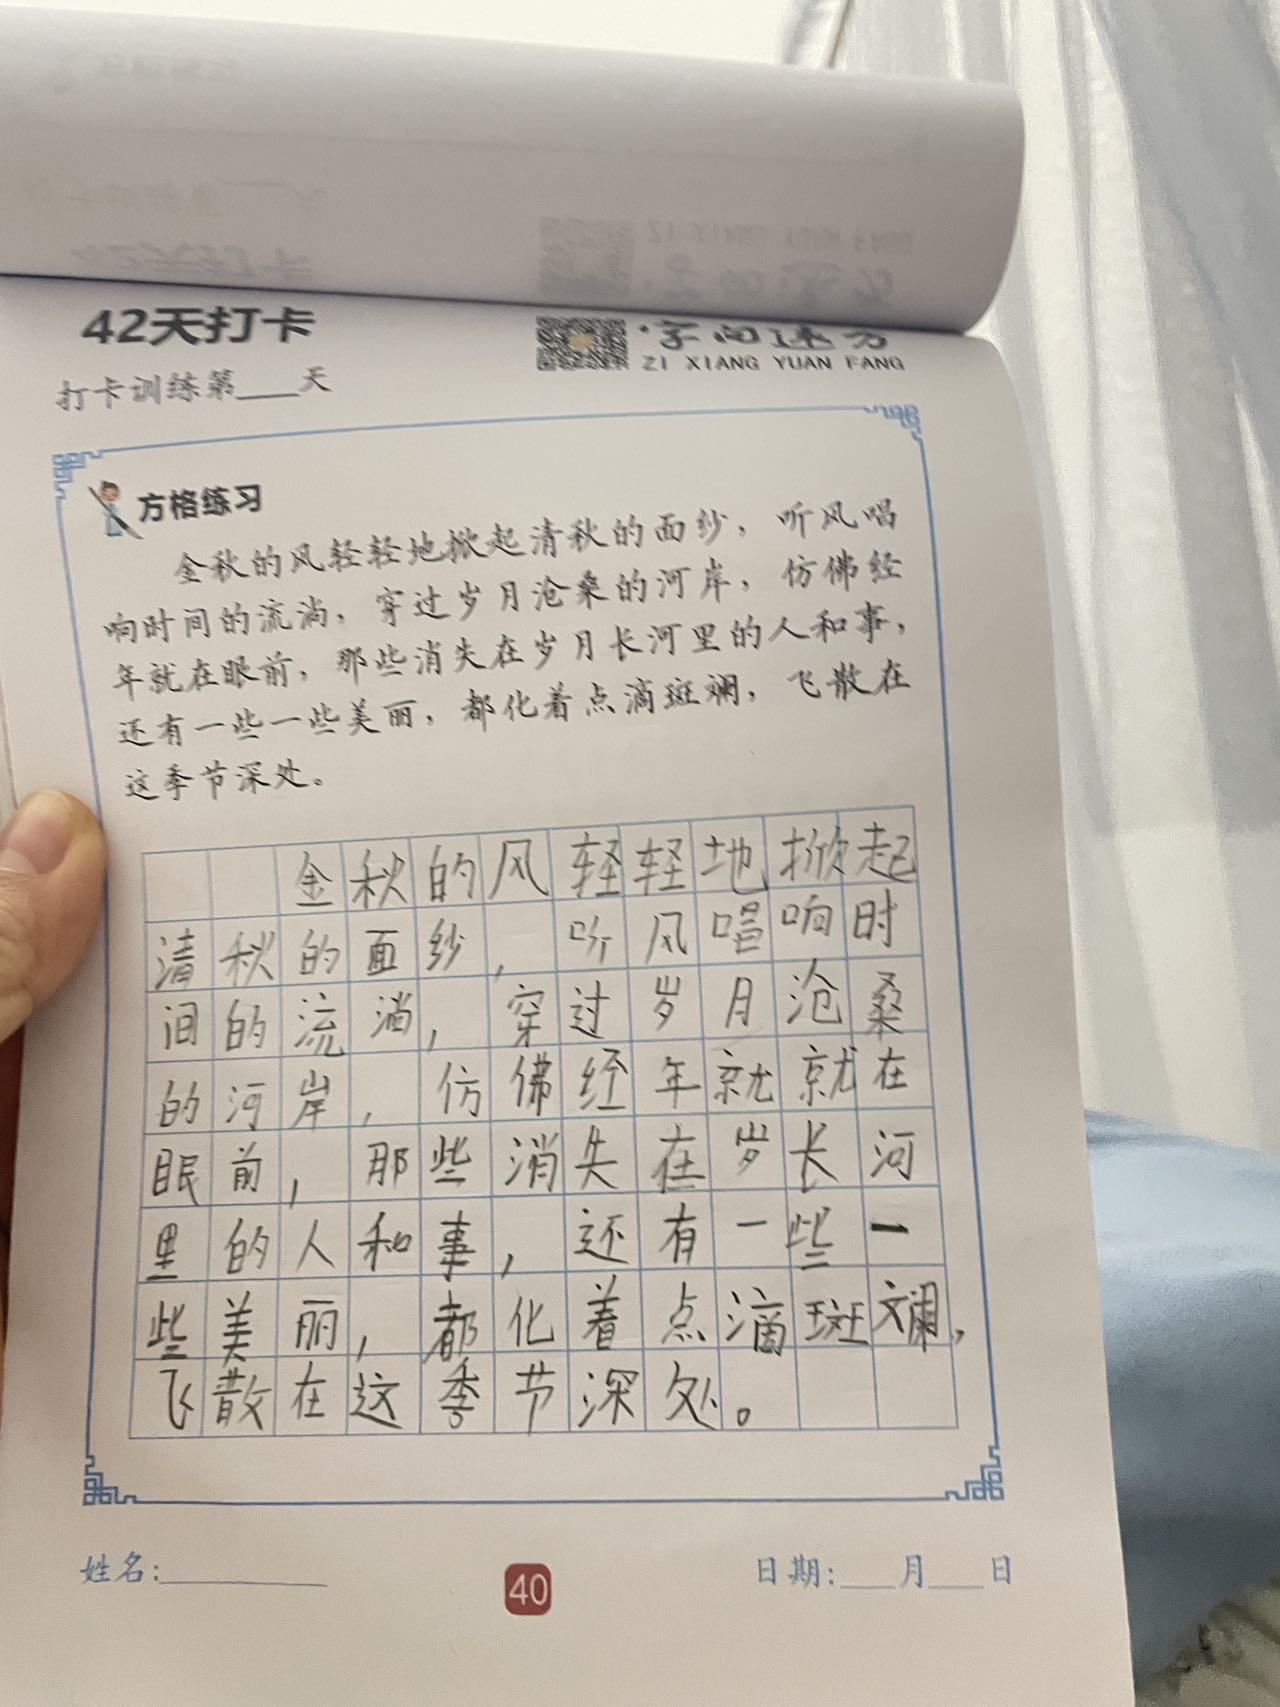 42天打卡
ZI XIANG YUAN FANG
打卡训练第___天
方格练习
金秋的风轻轻地掀起清秋的面纱，听风唱
响时间的流淌，穿过岁月沧桑的河岸，仿佛经
年就在眼前，那些消失在岁月长河里的人和事，
还有一些一些美丽，都化着点滴斑斓，飞散在
这季节深处。
金秋的风轻轻地掀起
清秋的面纱，听风唱响时
间的流淌，穿过岁月沧桑
的河岸，仿佛经年就就在
眼前，那些消失在岁长河
里的人和事，还有一些一
些美丽，都化着点滴斑斓，
飞散在这季节深处。
姓名:
40
日期:___月___日